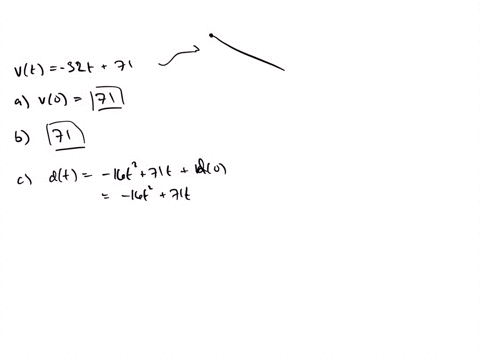 v(t) = -32t + 71
a) v(0) = 71
b) 71
c) d(t) = -16t² + 71t + d(0)
= -16t² + 71t